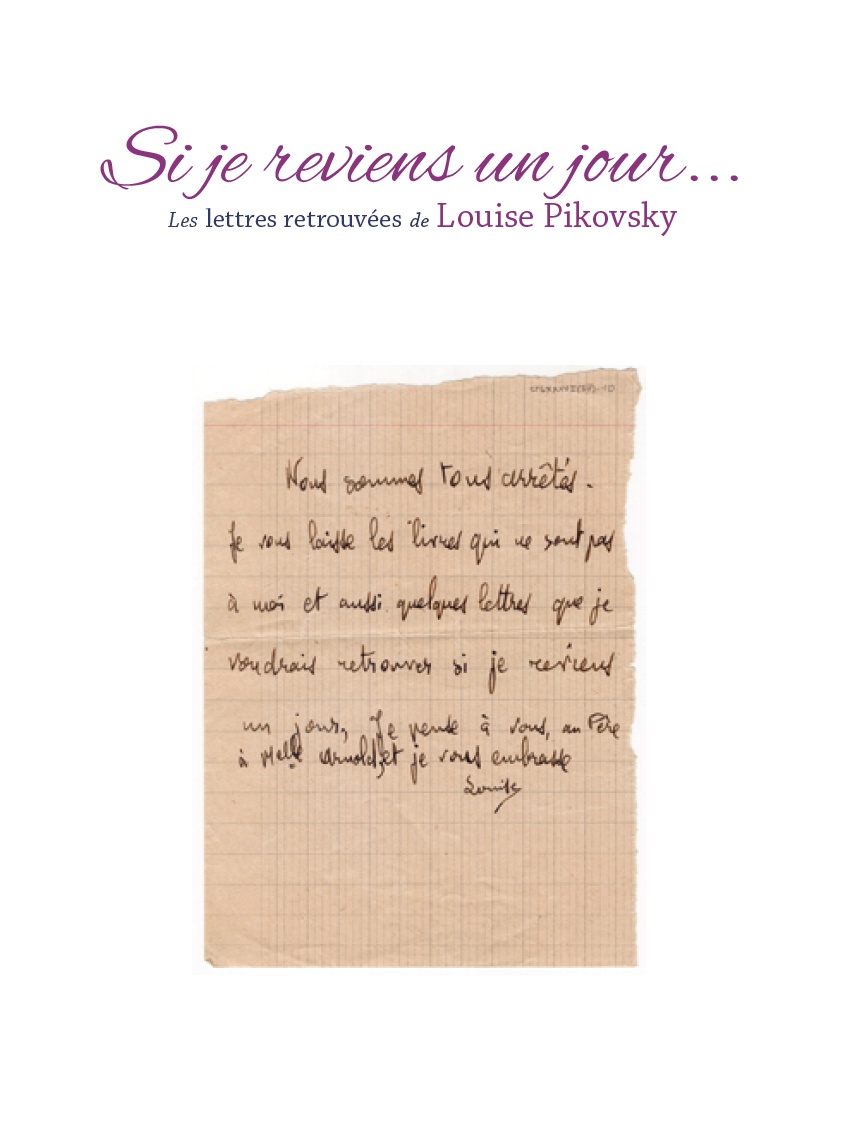 Si je reviens un jour...
Les lettres retrouvées de Louise Pikovsky
Nous sommes tous arrêtés.
Je vous laisse les livres qui ne sont pas
à moi et aussi quelques lettres que je
voudrais retrouver si je reviens
un jour, Je pense à vous, au Père
à Melle Arnold, et je vous embrasse
Louise